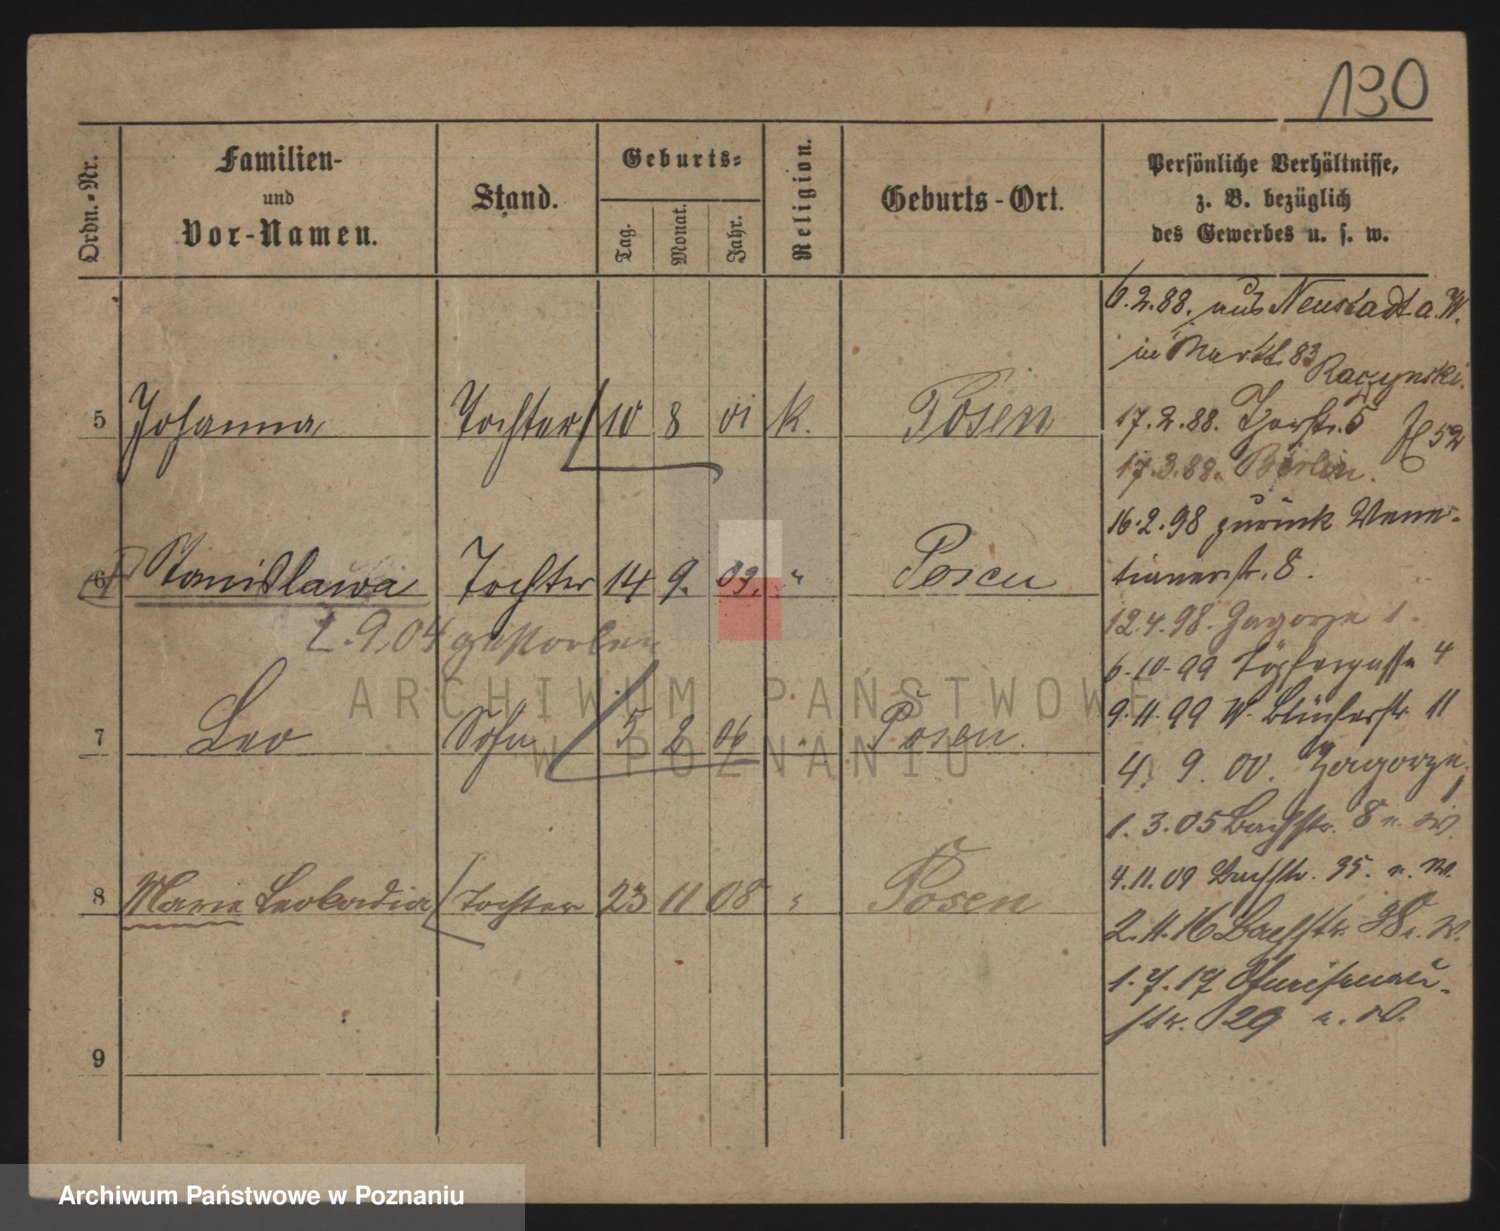 130
Ordn.-Nr.
Familien-
und
Vor-Namen.
Stand.
Geburts-
Tag.
Monat.
Jahr.
Religion.
Geburts-Ort.
Persönliche Verhältnisse,
z. B. bezüglich
des Gewerbes u. s. w.
6.2.88. aus Neustadt a. W.
in Markt 83 Raczynski.
5 Johanna Tochter 10 8 01 k. Posen
17.2.88. 5 52
17.3.88. Berlin.
16.2.98 zurück Vene-
tianerstr. 8.
6 Stanislawa Tochter 14 9. 03. " Posen
2.9.04 gestorben
12.4.98. Zagorze 1.
6.10.99 Töpfergasse 4
9.11.99 W. Blücherstr 11
7 Leo Sohn 5 2 06 " Posen
4. 9. 00. Zagorze
1.3.05 Bachstr. 8 n. W.
4.11.09 Bachstr. 35. n. W.
8 Marie Leokadia Tochter 23 11 08 " Posen
2.11.16 Bachstr. 38 n. W.
1.7.17 Gneisenau-
str. 29 n. W.
9
ARCHIWUM PAŃSTWOWE
W POZNANIU
Archiwum Państwowe w Poznaniu